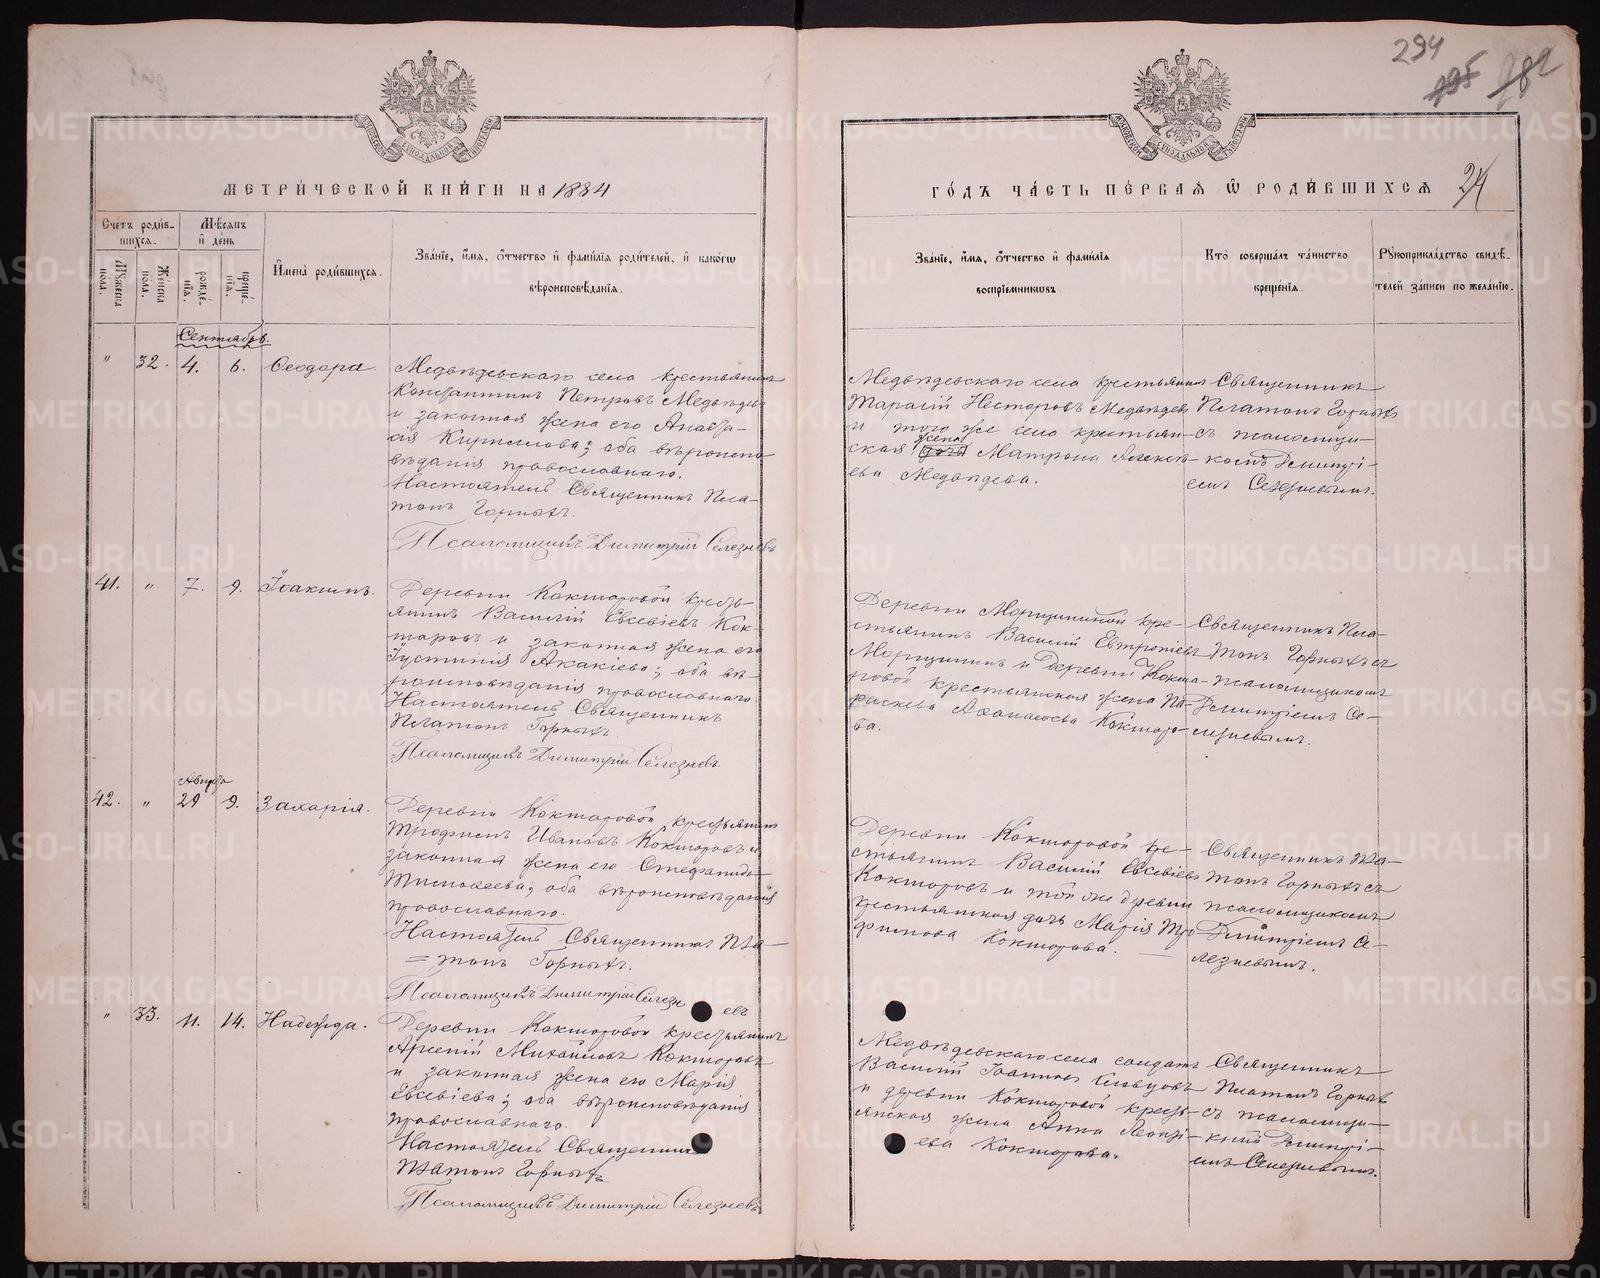 294
195 282
МЕТРИЧЕСКОЙ КНИГИ НА 1884
ГОДЪ ЧАСТЬ ПЕРВАЯ Ѿ РОДИВШИХСЯ 24
Счетъ родившихся.
Мужеска пола.
Женска пола.
Мѣсяцъ и день
рожденїя.
крещенїя.
Имена родившихся.
Званїе, имя, отчество и фамилїя родителей, и какогѡ
вѣроисповѣданїя.
Званїе, имя, отчество и фамилїя
воспрїемникѡвъ.
Кто совершалъ таинство
крещенїя.
Рукоприкладство свидѣтелей записи по желанїю.
Сентябрь.
" 32. 4. 6. Ѳеодора
Медвѣдевскаго села крестьянинъ
Константинъ Петровъ Медвѣдевъ
и законная жена его Анаста-
сія Кириллова; оба вѣроиспо-
вѣданія православнаго.
Настоятель Священникъ Пла-
тонъ Горныхъ.
Псаломщикъ Димитрій Селезневъ
Медвѣдевскаго села крестьянинъ
Тарасій Несторовъ Медвѣдевъ
и того же села крестьян-
ская жена Матрона Алексѣ-
ева Медвѣдева.
Священникъ
Платонъ Горныхъ
съ псаломщи-
комъ Димитрі-
емъ Селезневымъ.
41. " 7. 9. Іоакимъ.
Деревни Кокшаровой кресть-
янинъ Василій Евсевіевъ Кок-
шаровъ и законная жена его
Іустинія Акакіева; оба вѣ-
роисповѣданія православнаго
Настоятель Священникъ
Платонъ Горныхъ
Псаломщикъ Димитрій Селезневъ.
Деревни Моршининой кре-
стьянинъ Василій Евтропіевъ
Моршининъ и деревни Кокша-
ровой крестьянская жена Па-
раскева Аѳанасьева Кокшаро-
ва.
Священникъ Пла-
тонъ Горныхъ съ
псаломщикомъ
Димитріемъ Се-
лезневымъ.
Августа
42. " 29 9. Захарія.
Деревни Кокшаровой крестьянинъ
Трофимъ Ивановъ Кокшаровъ и
законная жена его Стефанида
Тимоѳеева; оба вѣроисповѣданія
православнаго.
Настоятель Священникъ Пла-
=тонъ Горныхъ.
Псаломщикъ Димитрій Селезневъ
Деревни Кокшаровой кре-
стьянинъ Василій Евсевіевъ
Кокшаровъ и той же деревни
крестьянская дочь Марія Тро-
фимова Кокшарова.
Священникъ Пла-
тонъ Горныхъ съ
псаломщикомъ
Димитріемъ Се-
лезневымъ.
" 33. 11. 14. Надежда.
Деревни Кокшаровой крестьянинъ
Арсеній Михайловъ Кокшаровъ
и законная жена его Марія
Евсевіева; оба вѣроисповѣданія
православнаго.
Настоятель Священникъ
Платонъ Горныхъ
Псаломщикъ Димитрій Селезневъ
Медвѣдевскаго села солдатъ
Василій Іоанновъ
и деревни Кокшаровой кресть-
янская жена Анна Леонті-
ева Кокшарова.
Священникъ
Платонъ Горныхъ
съ псаломщи-
комъ Димитрі-
емъ Селезневымъ.
METRIKI.GASO-URAL.RU